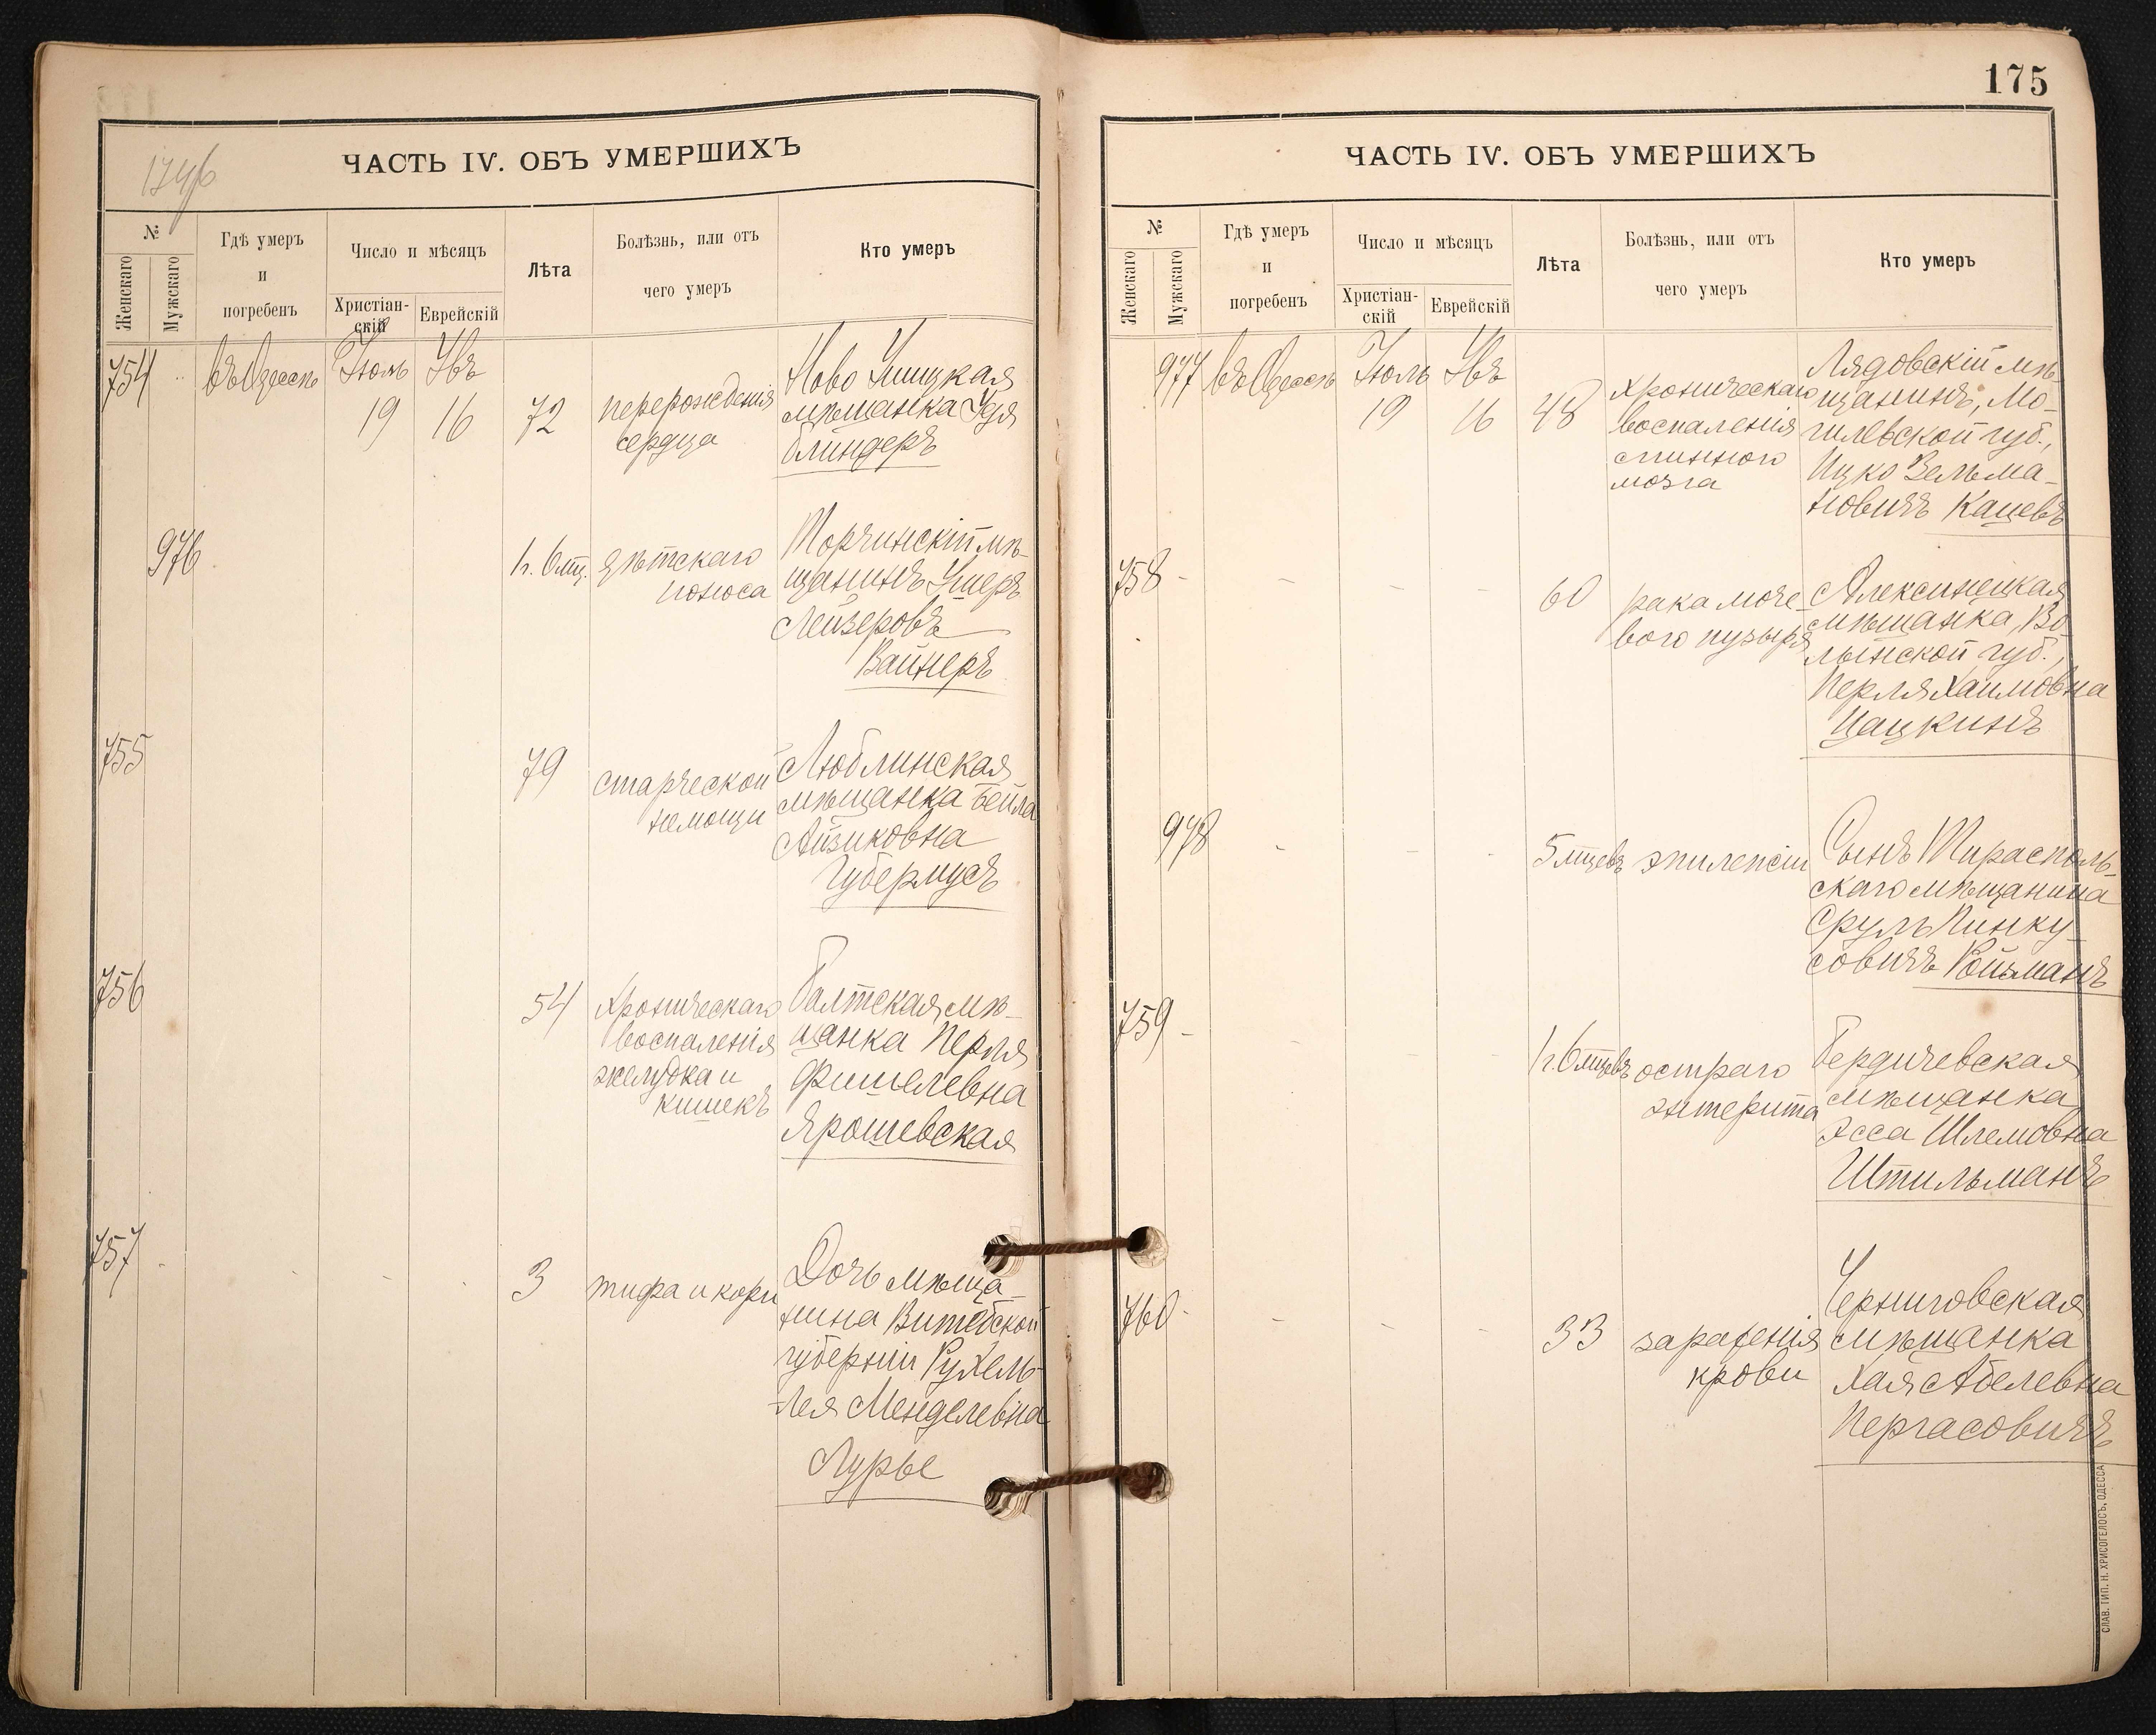 174б
ЧАСТЬ IV. ОБЪ УМЕРШИХЪ
№
Женскаго
Мужскаго
Гдѣ умеръ
и
погребенъ
Число и мѣсяцъ
Христіан-
скій
Еврейскій
Лѣта
Болѣзнь, или отъ
чего умеръ
Кто умеръ
754
въ Одессѣ
Іюль
19
Увъ
16
72
перерожденія
сердца
Ново Ушицкая
мѣщанка Удя
Блиндеръ
976
1 г. 6 мц.
дѣтскаго
поноса
Торчинскій мѣ-
щанинъ Ушеръ
Лейзеровъ
Вайнеръ
755
79
старческой
немощи
Люблинская
мѣщанка Бейла
Айзиковна
Губермусъ
756
54
Хроническаго
воспаленія
желудка и
кишекъ
Балтская мѣ-
щанка Перля
Фишелевна
Ярошевская
757
3
тифа и кори
Дочь мѣща-
нина Витебской
губерніи Рухель-
Лея Менделевна
Лурье
175
ЧАСТЬ IV. ОБЪ УМЕРШИХЪ
№
Женскаго
Мужскаго
Гдѣ умеръ
и
погребенъ
Число и мѣсяцъ
Христіан-
скій
Еврейскій
Лѣта
Болѣзнь, или отъ
чего умеръ
Кто умеръ
977
въ Одессѣ
Іюль
19
Увъ
16
48
Хроническаго
воспаленія
спинного
мозга
Лядовскій мѣ-
щанинъ, Мо-
гилевской губ.,
Ицко Зельма-
новичъ Кацевъ
758
60
рака моче-
вого пузыря
Алексинецкая
мѣщанка, Во-
лынской губ.,
Перля Хаимовна
Цацкинъ
978
5 мцевъ
эпилепсіи
Сынъ Тирасполь-
скаго мѣщанина
Сруль Пинку-
совичъ Ройзманъ
759
1 г. 6 мцевъ
остраго
энтерита
Бердичевская
мѣщанка
Эсса Шлемовна
Штильманъ
760
33
зараженія
крови
Черниговская
мѣщанка
Хая Абелевна
Пергасовичъ
СЛАВ. ТИП. Н. ХРИСОГЕЛОСЪ, ОДЕССА